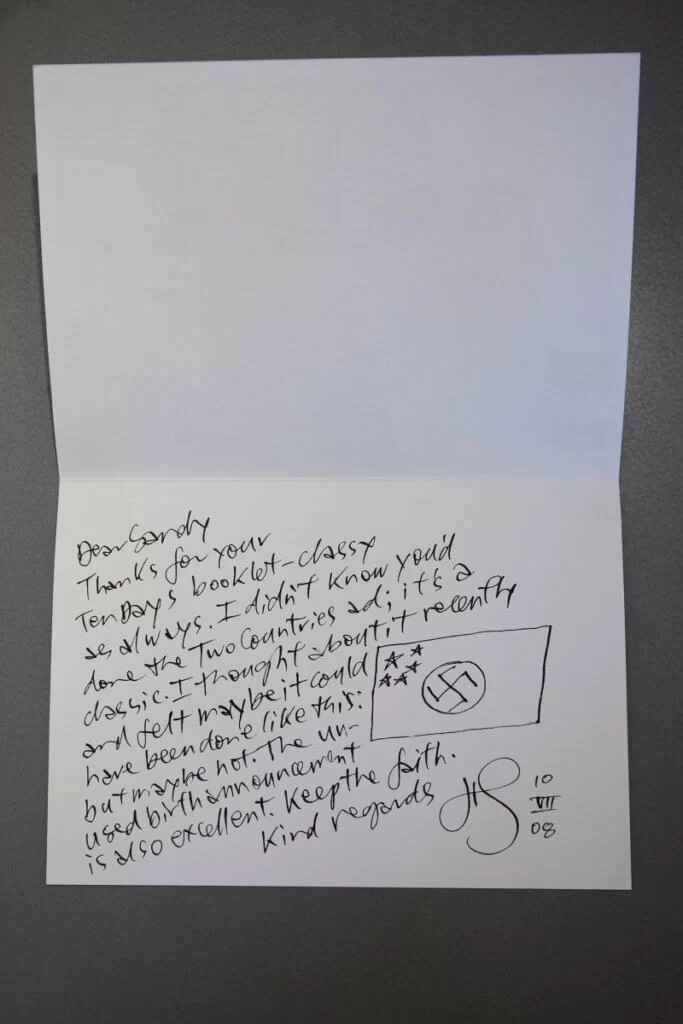 Dear Sandy
Thanks for your
Ten Days booklet-classy
as always. I didn't know you'd
done the Two Countries ad; it's a
classic. I thought about it recently
and felt maybe it could
have been done like this:
but maybe not. The un-
used birth announcement
is also excellent. Keep the faith.
Kind regards
HS
10
VII
08